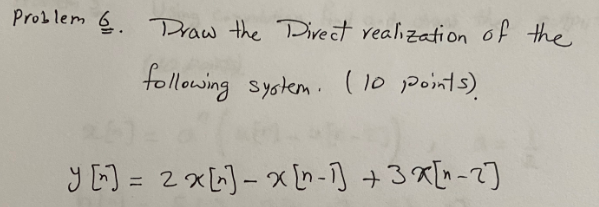 Problem 6. Draw the Direct realization of the
following system. (10 points).
y[n] = 2x[n] - x[n-1] + 3x[n-2]